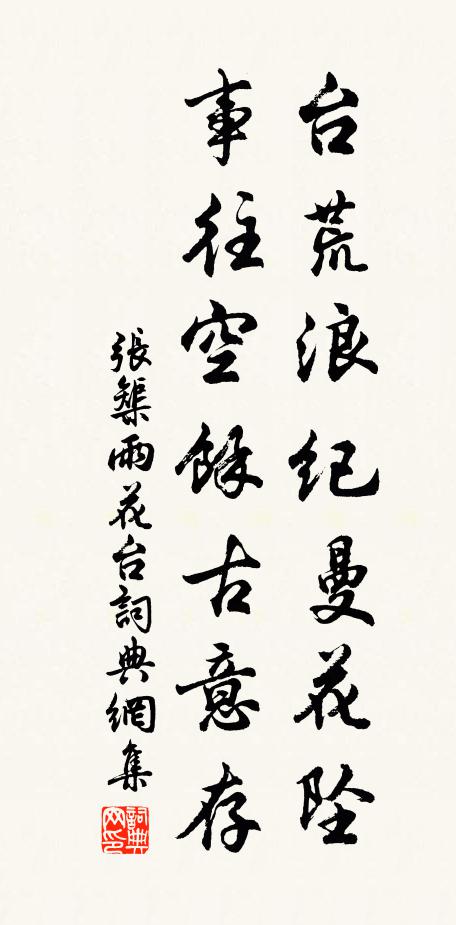 台荒浪纪曼花坠
事往空餘古意存
張榘雨花台詞典網集
詞典網印